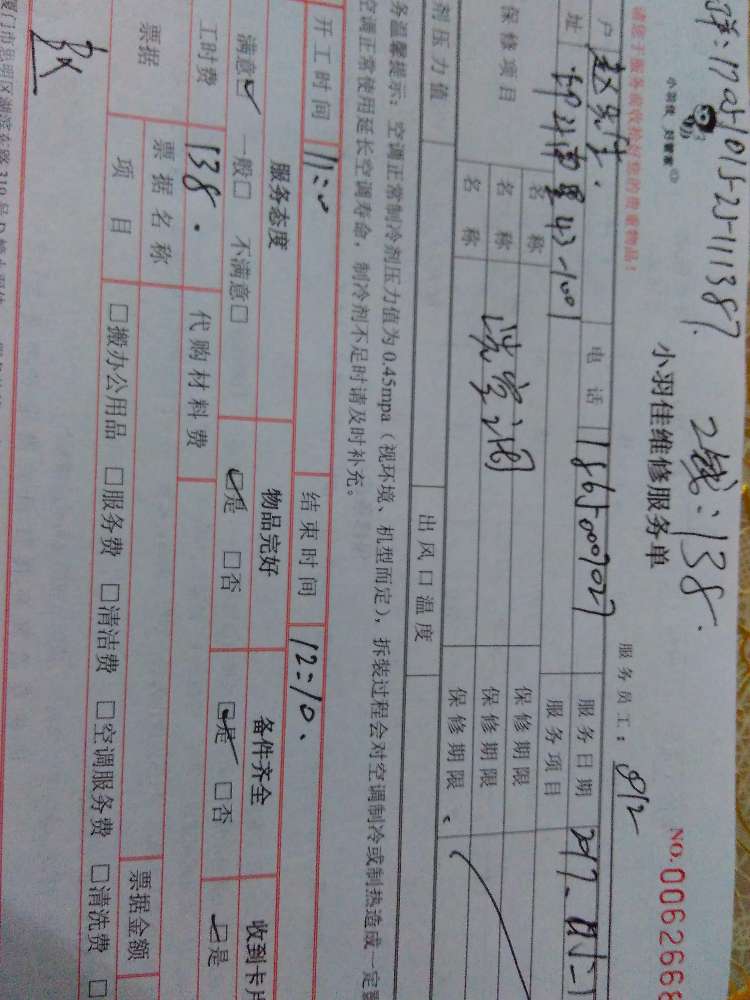 小羽佳 好管家
2线:138.
小羽佳维修服务单
NO.0062668
请您于服务前收拾好您的贵重物品!
服务员工: 812
户 赵先生.
电话 18650009027
服务日期
址
服务项目
保修项目
名称
保修期限
名称 洗空调
保修期限
名称
保修期限
剂压力值
出风口温度
务温馨提示:空调正常制冷剂压力值为0.45mpa(视环境、机型而定),拆装过程会对空调制冷或制热造成一定
空调正常使用延长空调寿命,制冷剂不足时请及时补充。
开工时间 11:00
结束时间 12:10.
服务态度
物品完好
备件齐全
收到卡片
满意☑ 一般□ 不满意□
☑是 □否
☑是 □否
☑是
工时费 138.
代购材料费
票据
票据名称
票据金额
项目
□搬办公用品 □服务费 □清洁费 □空调服务费 □清洗费 □
厦门市思明区湖滨东路319号D